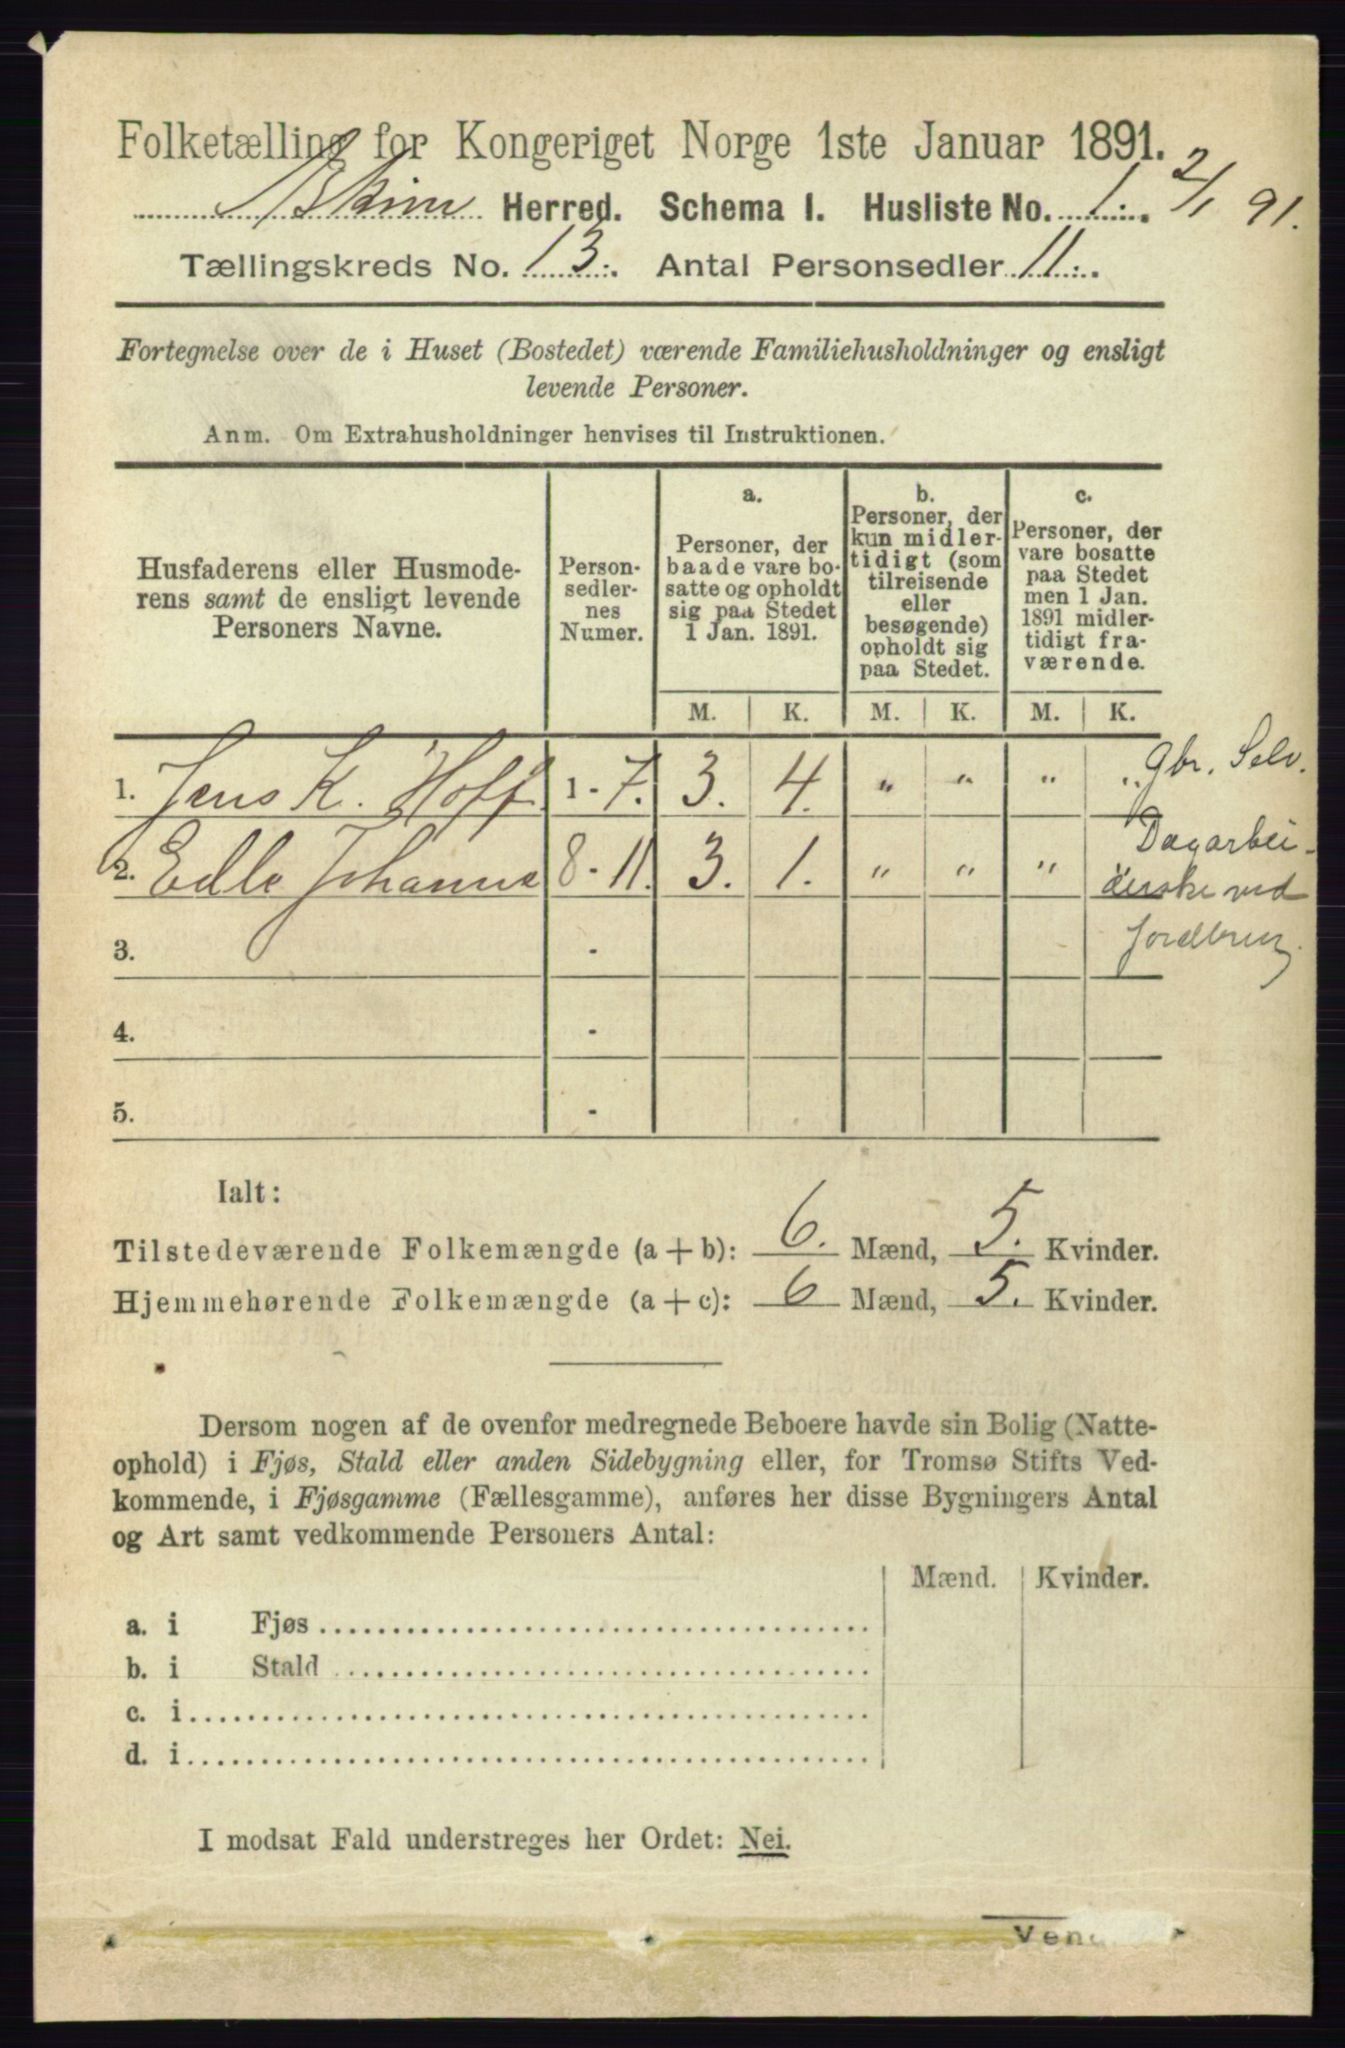 Folketælling for Kongeriget Norge 1ste Januar 1891.
Askim Herred. Schema I. Husliste No. 1. 2/1 91.
Tællingskreds No. 13. Antal Personsedler 11.
Fortegnelse over de i Huset (Bostedet) værende Familiehusholdninger og ensligt
levende Personer.
Anm. Om Extrahusholdninger henvises til Instruktionen.
Husfaderens eller Husmode-
rens samt de ensligt levende
Personers Navne.
Person-
sedler-
nes
Numer.
a.
Personer, der
baade vare bo-
satte og opholdt
sig paa Stedet
1 Jan. 1891.
b.
Personer, der
kun midler-
tidigt (som
tilreisende
eller
besøgende)
opholdt sig
paa Stedet.
c.
Personer, der
vare bosatte
paa Stedet
men 1 Jan.
1891 midler-
tidigt fra-
værende.
M. K. M. K. M. K.
1. Jens K. Hoff 1 - 7. 3. 4. " " " " Gbr. Selv.
2. Edle Johanne 8 - 11. 3. 1. " " " " Dagarbei-
derske ved
Jordbrug.
3. -
4. -
5. -
Ialt:
Tilstedeværende Folkemængde (a + b): 6. Mænd, 5. Kvinder.
Hjemmehørende Folkemængde (a + c): 6 Mænd, 5. Kvinder.
Dersom nogen af de ovenfor medregnede Beboere havde sin Bolig (Natte-
ophold) i Fjøs, Stald eller anden Sidebygning eller, for Tromsø Stifts Ved-
kommende, i Fjøsgamme (Fællesgamme), anføres her disse Bygningers Antal
og Art samt vedkommende Personers Antal:
Mænd. Kvinder.
a. i Fjøs
b. i Stald
c. i
d. i
I modsat Fald understreges her Ordet: Nei.